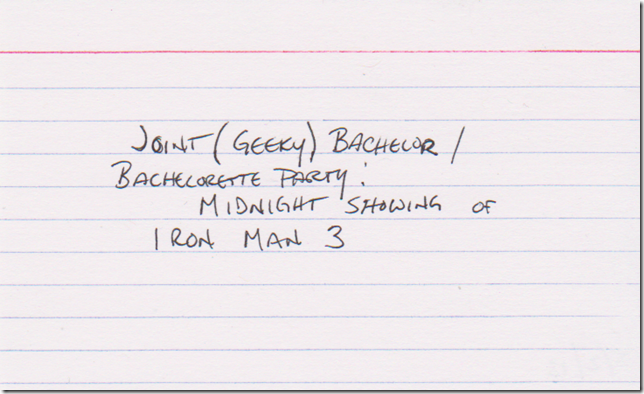 JOINT (GEEKY) BACHELOR /
BACHELORETTE PARTY:
MIDNIGHT SHOWING OF
IRON MAN 3